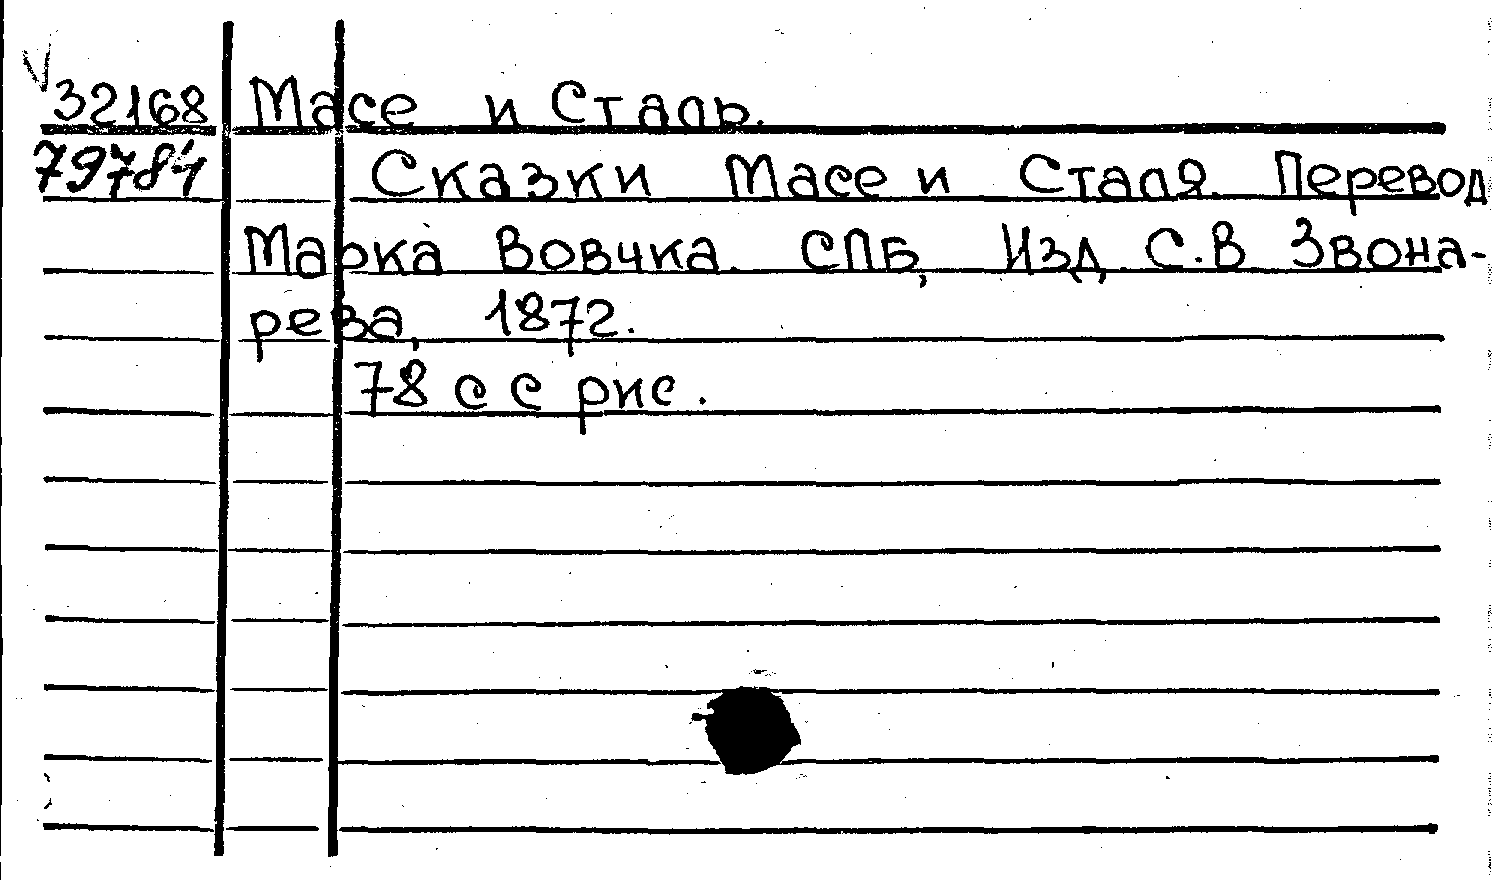 32168 Масе и Сталь.
79784 Сказки Масе и Сталя. Перевод
Марка Вовчка. СПБ, Изд. С.В Звона-
рева, 1872.
78 с с рис.